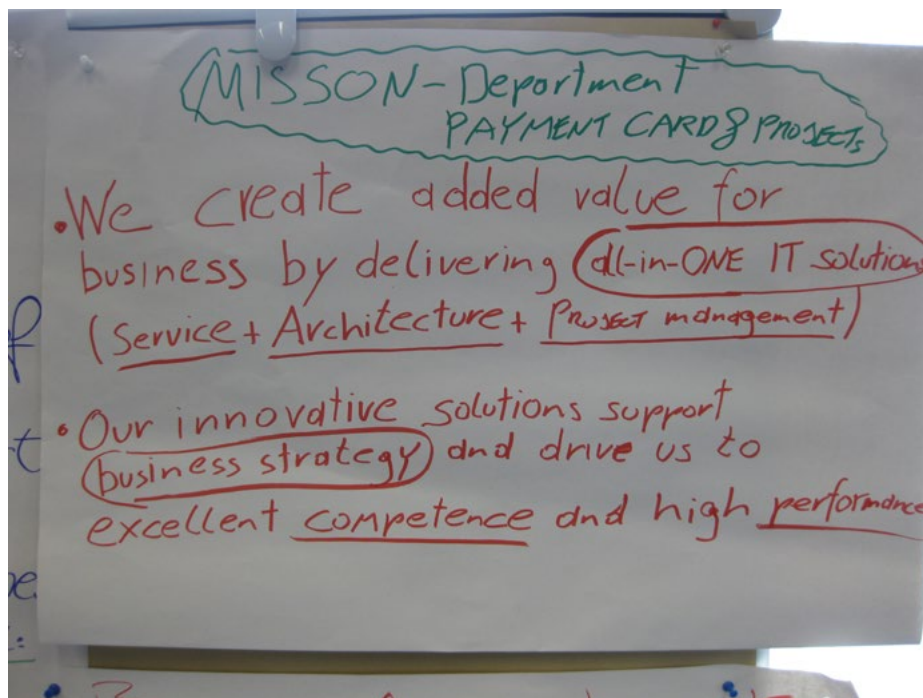 MISSON - Department
PAYMENT CARD & PROJECTS
• We create added value for
business by delivering all-in-ONE IT solutions
(Service + Architecture + PROJECT management)
• Our innovative solutions support
business strategy and drive us to
excellent competence and high performance